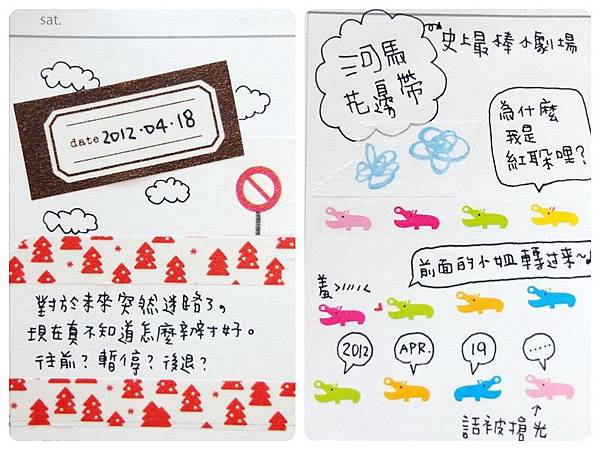 sat.
date 2012.04.18
對於未來突然迷路了,
現在真不知道怎麼辦才好。
往前?暫停?後退?
河馬
花邊帶
史上最棒小劇場
為什麼
我是
紅躲哩?
前面的小姐轉过来~♪
羞>/////<
2012
APR.
19
.....
話被搶光